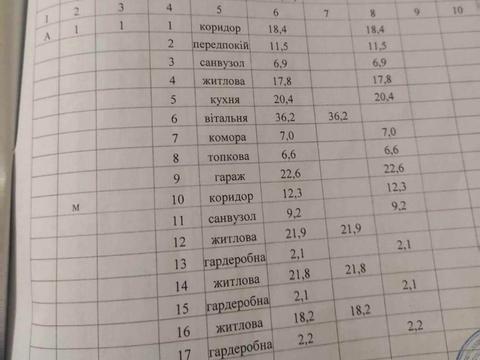 1 2 3 4 5 6 7 8 9 10
А 1 1 1 коридор 18,4 18,4
2 передпокій 11,5 11,5
3 санвузол 6,9 6,9
4 житлова 17,8 17,8
5 кухня 20,4 20,4
6 вітальня 36,2 36,2
7 комора 7,0 7,0
8 топкова 6,6 6,6
9 гараж 22,6 22,6
м 10 коридор 12,3 12,3
11 санвузол 9,2 9,2
12 житлова 21,9 21,9
13 гардеробна 2,1 2,1
14 житлова 21,8 21,8
15 гардеробна 2,1 2,1
16 житлова 18,2 18,2
17 гардеробна 2,2 2,2